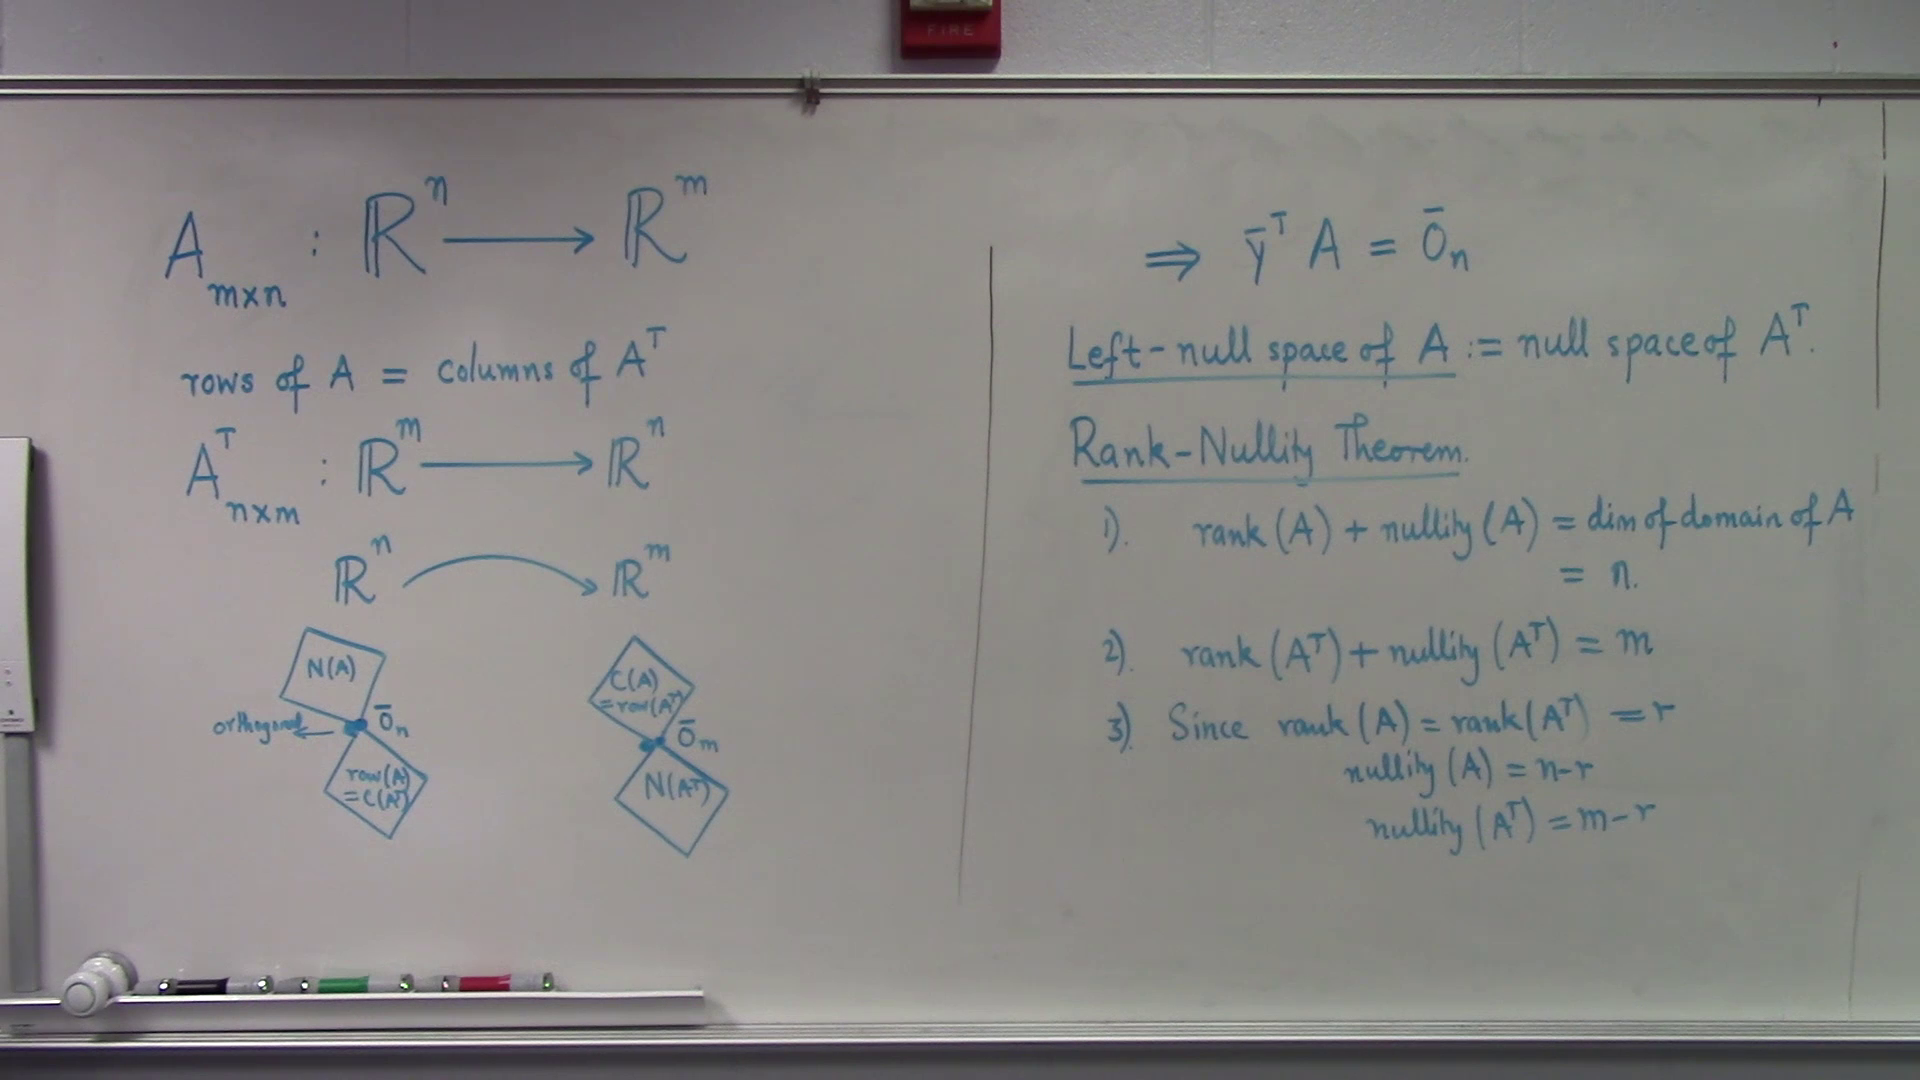 FIRE
A m×n : ℝ^n ⟶ ℝ^m
rows of A = columns of A^T
A^T n×m : ℝ^m ⟶ ℝ^n
ℝ^n ⟶ ℝ^m
N(A)
0̄_n
orthogonal ←
row(A)
= C(A^T)
C(A)
= row(A^T)
0̄_m
N(A^T)
⇒ ȳ^T A = 0̄_n
Left-null space of A := null space of A^T.
Rank-Nullity Theorem.
1). rank (A) + nullity (A) = dim of domain of A
= n.
2). rank (A^T) + nullity (A^T) = m
3). Since rank (A) = rank (A^T) = r
nullity (A) = n-r
nullity (A^T) = m-r